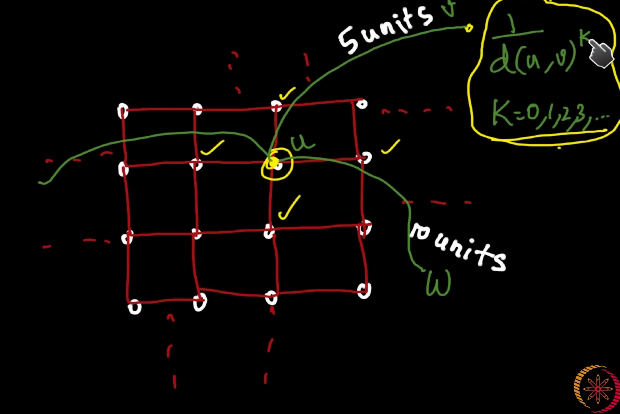 5 units v
1
d(u,v)^K
K=0,1,2,3,...
u
10 units
W